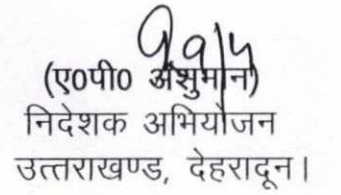 (ए०पी० अंशुमान)
निदेशक अभियोजन
उत्तराखण्ड, देहरादून।